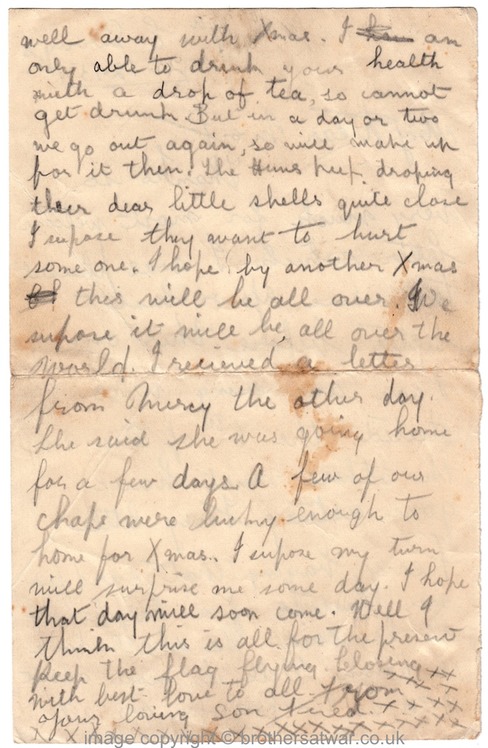 well away with Xmas. I am
only able to drink your health
with a drop of tea, so cannot
get drunk. But in a day or two
we go out again, so will make up
for it then. The Huns keep droping
their dear little shells quite close
I supose they want to hurt
some one. I hope by another Xmas
this will be all over. We
supose it will be all over the
world. I recieved a letter
from Mercy the other day.
She said she was going home
for a few days. A few of our
chaps were lucky enough to
home for Xmas. I supose my turn
will surprise me some day. I hope
that day will soon come. Well I
think this is all for the present
Keep the flag flying. Closing xx
with best love to all. From xxx
your loving Son Fred. xxxxxx
x x x x x x x x x x x x x x
image copyright © brothersatwar.co.uk